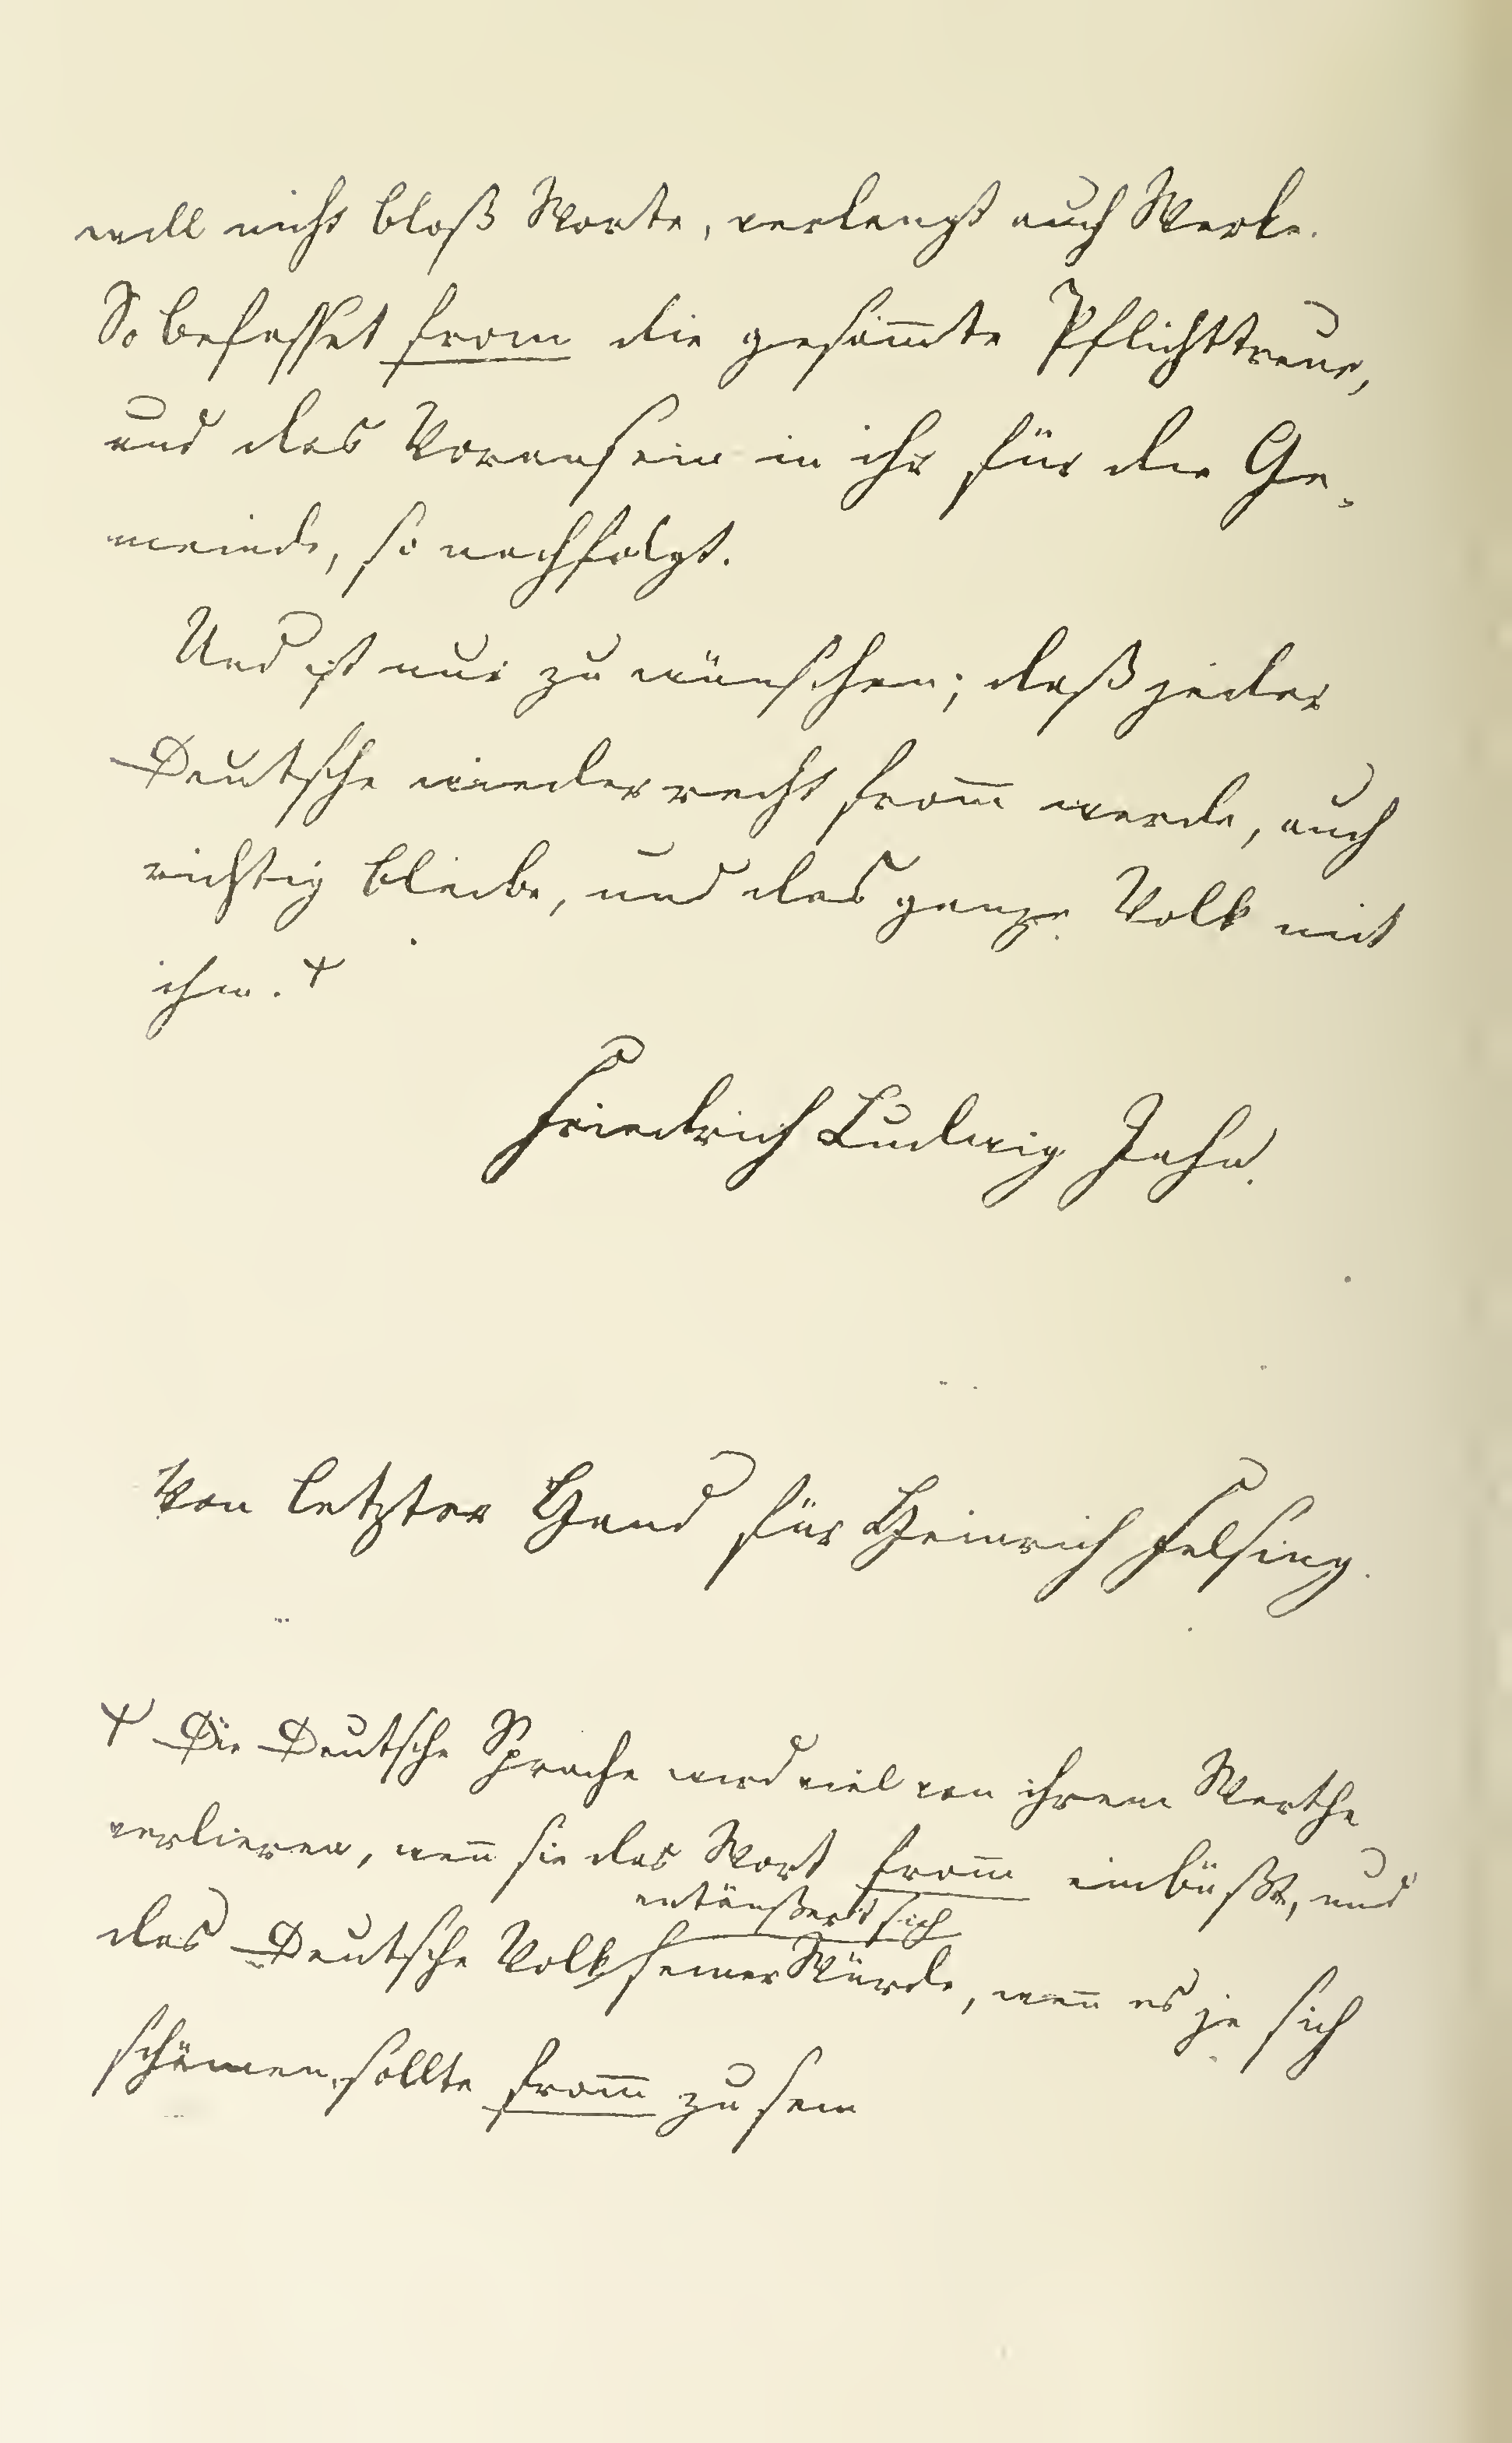 will nicht bloß Worte, verlangt auch Werke.
So befasset from̅ die gesam̅te Pflichttreue,
und das Voransein in ihr für die Ge-
meinde, so nachfolgt.
Und ist nur zu wünschen; daß jeder
Deutsche wieder recht from̅ werde, auch
richtig bleibe, und das ganze Volk mit
ihm. +
Friedrich Ludwig Jahn.
Von letzter Hand für Heinrich Felsing.
+ Die Deutsche Sprache wird viel von ihrem Werthe
verlieren, wen̅ sie das Wort from̅ einbüßt, und
entäußert sich
das Deutsche Volk seiner Würde, wen̅ es je sich
schämen sollte from̅ zu sein